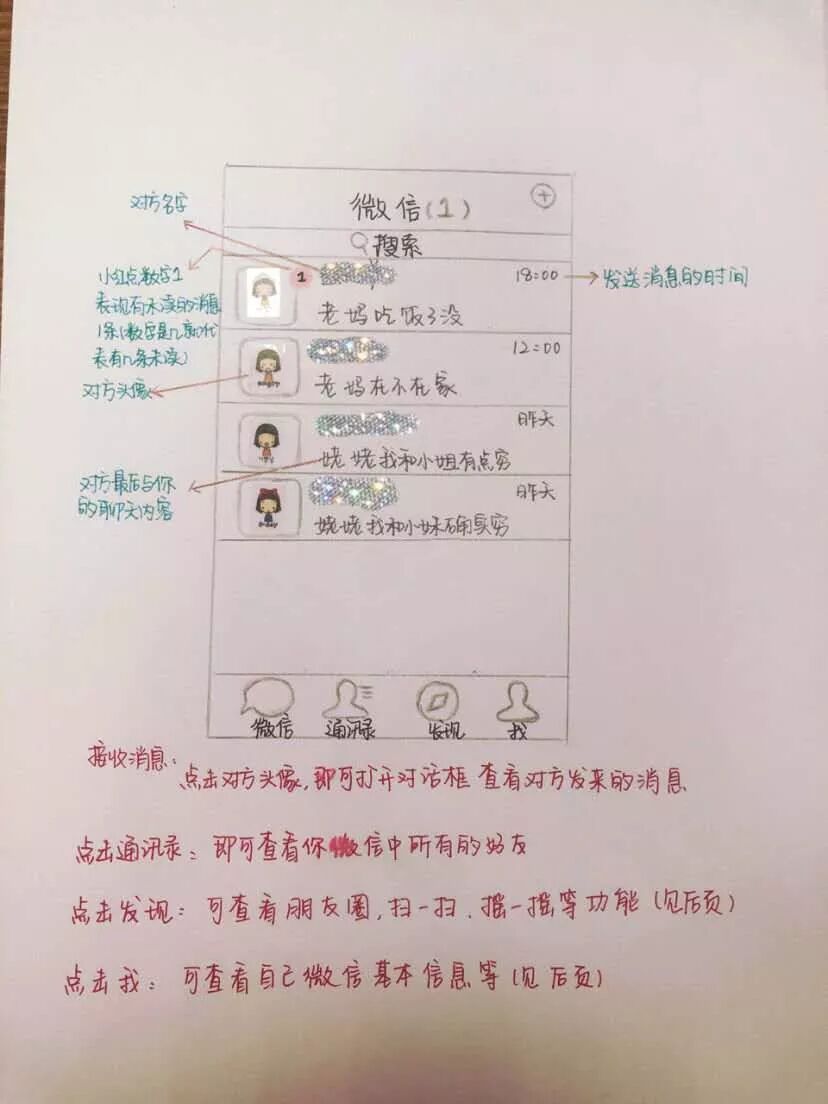 对方名字
微信(1)
搜索
小红点数字1
表现有未读的消息
1条(数字是几就代
表有几条未读)
1
18:00
发送消息的时间
老妈吃饭了没
12:00
对方头像
老妈在不在家
昨天
姥姥我和小姐有点穷
对方最后与你
的聊天内容
昨天
姥姥我和小妹确实穷
微信 通讯录 发现 我
接收消息:
点击对方头像,即可打开对话框 查看对方发来的消息
点击通讯录: 即可查看你微信中所有的好友
点击发现: 可查看朋友圈,扫一扫、摇一摇等功能(见后页)
点击我: 可查看自己微信基本信息等(见后页)